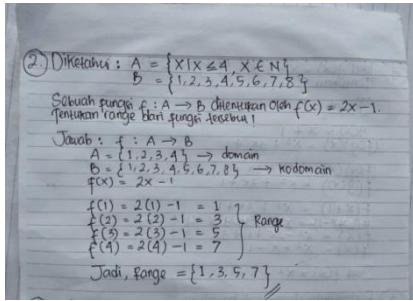 2. Diketahui : A = {x|x ≤ 4, x ∈ N}
B = {1,2,3,4,5,6,7,8}
Sebuah fungsi f : A → B ditentukan oleh f(x) = 2x-1.
Tentukan range dari fungsi tersebut !
Jawab : f : A → B
A = {1,2,3,4} → domain
B = {1,2,3,4,5,6,7,8} → kodomain
f(x) = 2x - 1
f(1) = 2(1) - 1 = 1
f(2) = 2(2) - 1 = 3
f(3) = 2(3) - 1 = 5
f(4) = 2(4) - 1 = 7
Range
Jadi, Range = {1,3,5,7}